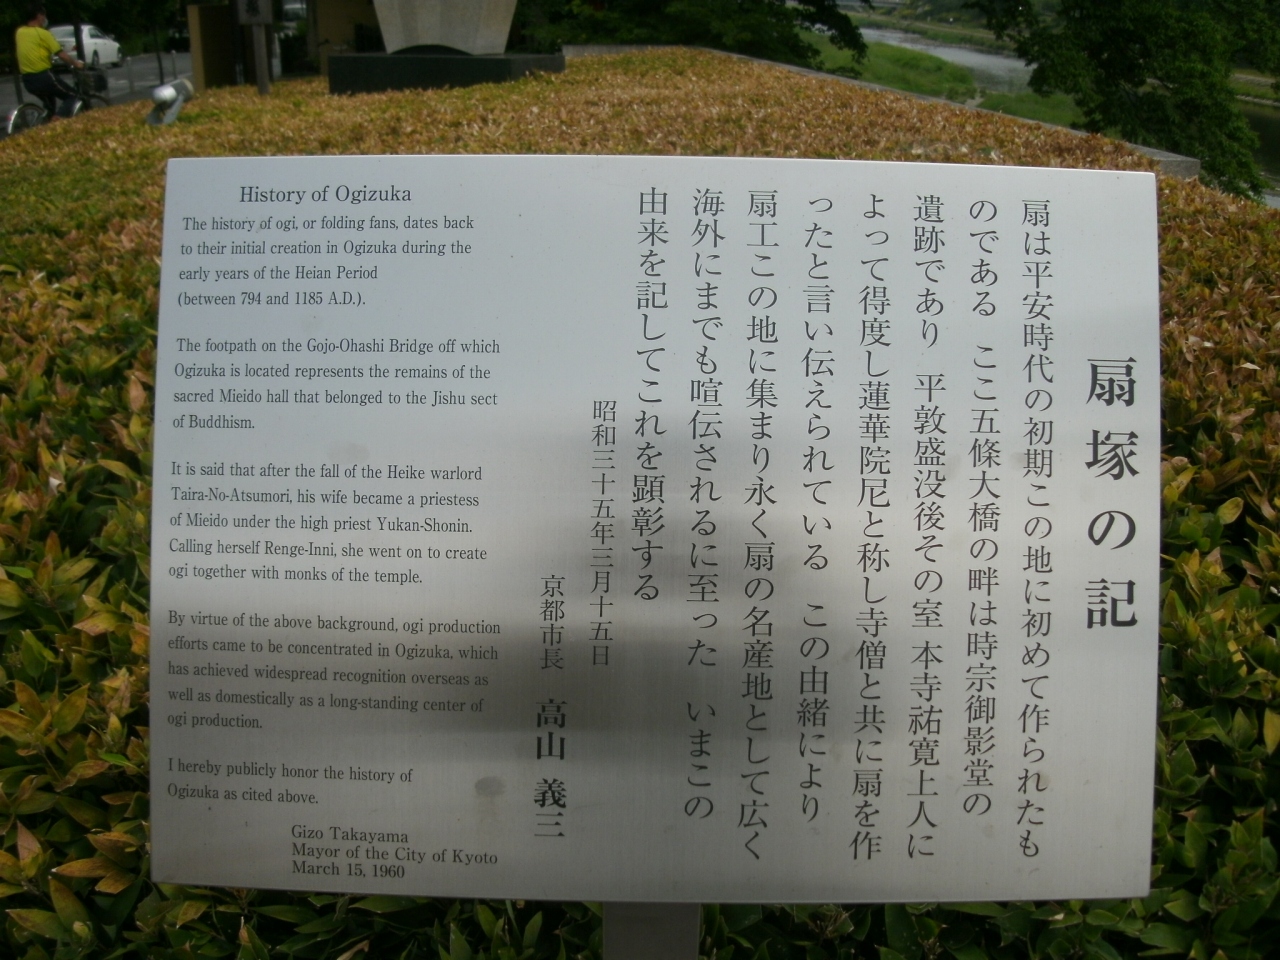 History of Ogizuka
The history of ogi, or folding fans, dates back
to their initial creation in Ogizuka during the
early years of the Heian Period
(between 794 and 1185 A.D.).
The footpath on the Gojo-Ohashi Bridge off which
Ogizuka is located represents the remains of the
sacred Mieido hall that belonged to the Jishu sect
of Buddhism.
It is said that after the fall of the Heike warlord
Taira-No-Atsumori, his wife became a priestess
of Mieido under the high priest Yukan-Shonin.
Calling herself Renge-Inni, she went on to create
ogi together with monks of the temple.
By virtue of the above background, ogi production
efforts came to be concentrated in Ogizuka, which
has achieved widespread recognition overseas as
well as domestically as a long-standing center of
ogi production.
I hereby publicly honor the history of
Ogizuka as cited above.
Gizo Takayama
Mayor of the City of Kyoto
March 15, 1960
扇塚の記
扇は平安時代の初期この地に初めて作られたも
のである ここ五條大橋の畔は時宗御影堂の
遺跡であり 平敦盛没後その室 本寺祐寛上人に
よって得度し蓮華院尼と称し寺僧と共に扇を作
ったと言い伝えられている この由緒により
扇工この地に集まり永く扇の名産地として広く
海外にまでも喧伝されるに至った いまこの
由来を記してこれを顕彰する
昭和三十五年三月十五日
京都市長 高山 義三